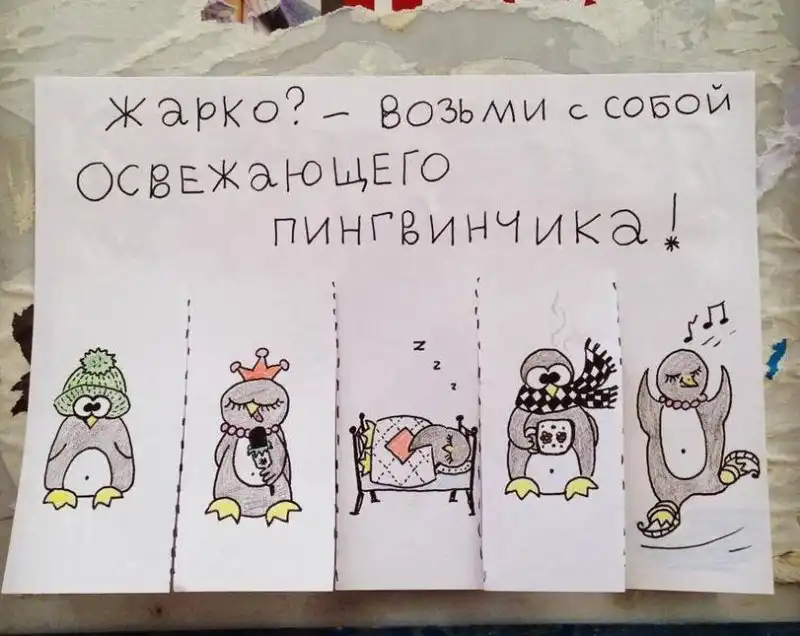 Жарко? - возьми с собой
освежающего
пингвинчика!
z
z
z